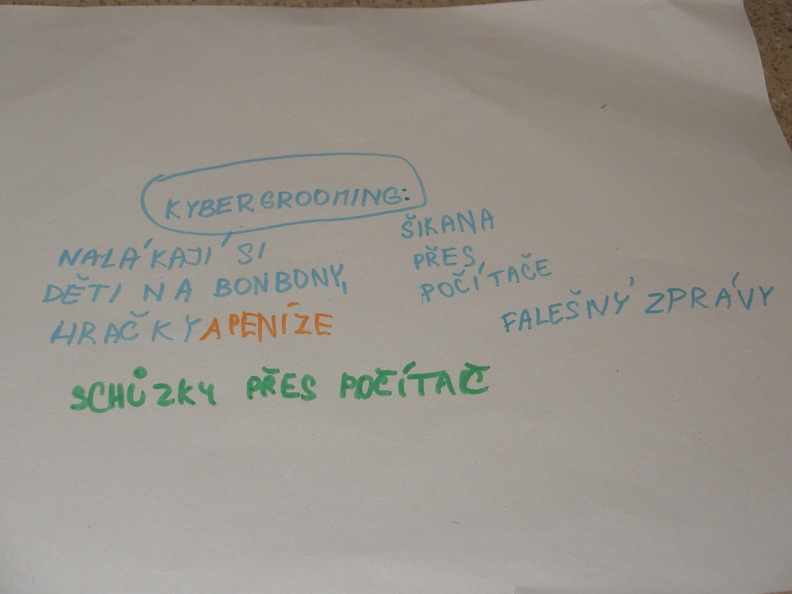 KYBERGROOMING:
NALÁKAJÍ SI
DĚTI NA BONBONY,
HRAČKY A PENÍZE
ŠIKANA
PŘES
POČÍTAČE
FALEŠNÝ ZPRÁVY
SCHŮZKY PŘES POČÍTAČ